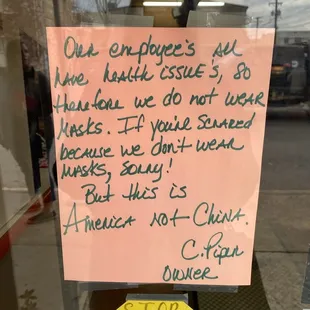 Our employee's all
have health issue's, so
therefore we do not wear
masks. If you're scared
because we don't wear
masks, sorry!
But this is
America not China.
C. Piper
Owner
STOP